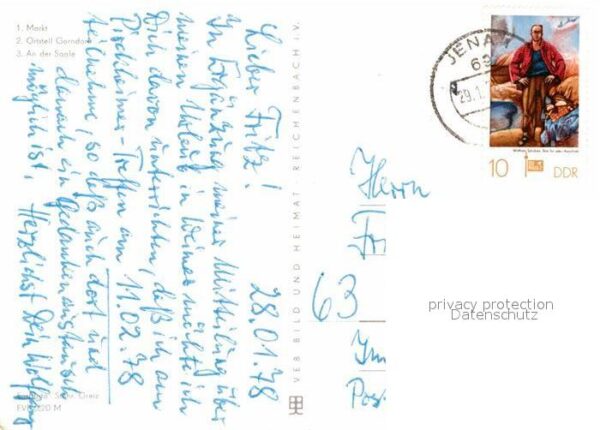 1. Markt
2. Ortsteil Gorndorf
3. An der Saale
28.01.78
Lieber Fritz!
In Ergänzung meiner Mitteilung über
meinen Urlaub in Weimar möchte ich
Dich davon unterrichten, daß ich am
Pirckheimer-Treffen am 11.02.78
teilnehme, so daß auch dort und
danach ein Gedankenaustausch
möglich ist. Herzlichst Dein Wolfgang
VEB BILD UND HEIMAT REICHENBACH i.V.
JENA
69
29.1.
10
DDR
Herrn
Fri
63
Ilm
Pos
privacy protection
Datenschutz